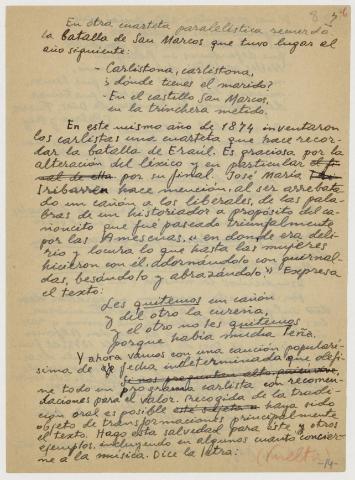 8 7 6
En otra cuarteta paralelística recuerda
la batalla de San Marcos que tuvo lugar el
año siguiente:
- Carlistona, carlistona,
¿dónde tienes el marido?
- En el castillo San Marcos,
en la trinchera metido.
En este mismo año de 1874 inventaron
los carlistas una cuarteta que hace recor-
dar la batalla de Eraul. Es graciosa por la
alteración del léxico y en particular
por su final. José María
Iribarren hace mención, al ser arrebata-
do un cañón a los liberales, de las pala-
bras de un historiador a propósito del ca-
ñoncito que fue paseado triunfalmente
por las Amescuas, "en donde era deli-
rio y locura lo que hasta las mujeres
hicieron con él adornándolo con guirnal-
das, besándolo y abrazándolo." Expresa
el texto:
Les quitemos un cañón
y del otro la cureña,
el otro no les quitemos
porque había mucha leña.
Y ahora vamos con una canción populari-
sima de fecha indeterminada que defi-
ne todo un programa carlista con recomen-
daciones para el valor. Recogida de la tradi-
ción oral es posible haya sido
objeto de transformaciones principalmente
el texto. Hago esta salvedad para este y otros
ejemplos, incluyendo en algunos cuanto concier-
ne a la música. Dice la letra:
(vuelta)
-14-